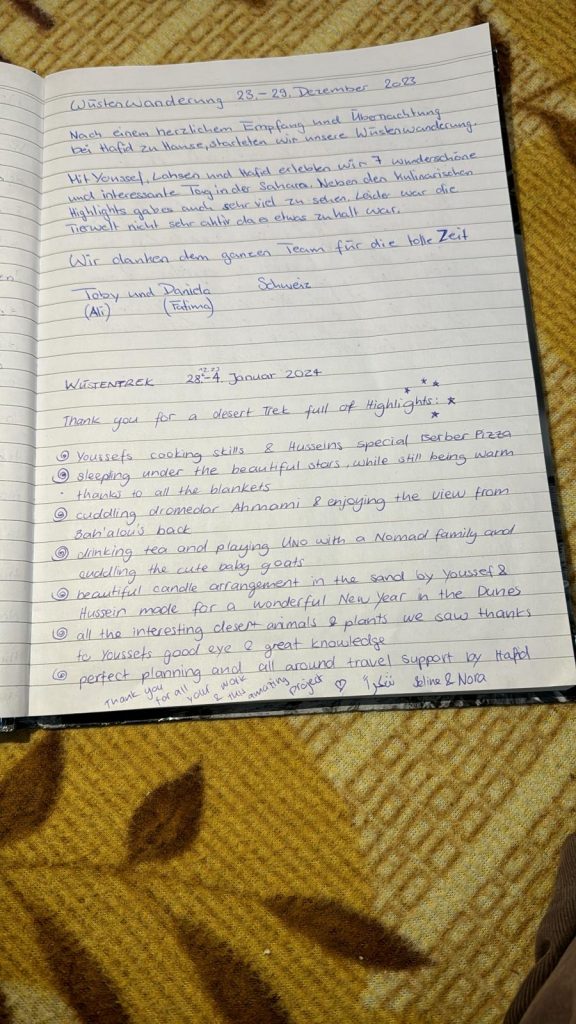 Wüstenwanderung 23.-29. Dezember 2023
Nach einem herzlichem Empfang und Übernachtung
bei Hafid zu Hause, starteten wir unsere Wüstenwanderung.
Mit Youssef, Lahsen und Hafid erlebten wir 7 wunderschöne
und interessante Tag in der Sahara. Neben den Kulinarischen
Highlights gab es auch sehr viel zu sehen. Leider war die
Tierwelt nicht sehr aktiv da es etwas zu kalt war.
Wir danken dem ganzen Team für die tolle Zeit
Toby und Daniela Schweiz
(Ali) (Fatima)
WÜSTENTREK 28.-4. Januar 2024
Thank you for a desert Trek full of Highlights:
Youssefs cooking skills & Husseins special Berber Pizza
sleeping under the beautiful stars, while still being warm
thanks to all the blankets
cuddling dromedar Ahmami & enjoying the view from
Bah'alou's back
drinking tea and playing UNO with a Nomad family and
cuddling the cute baby goats
beautiful candle arrangement in the sand by Youssef &
Hussein made for a wonderful New Year in the Dunes
all the interesting desert animals & plants we saw thanks
to Youssefs good eye & great knowledge
perfect planning and all around travel support by Hafid
Thank you for all your work & this amazing project ♡ شكراً & Nora